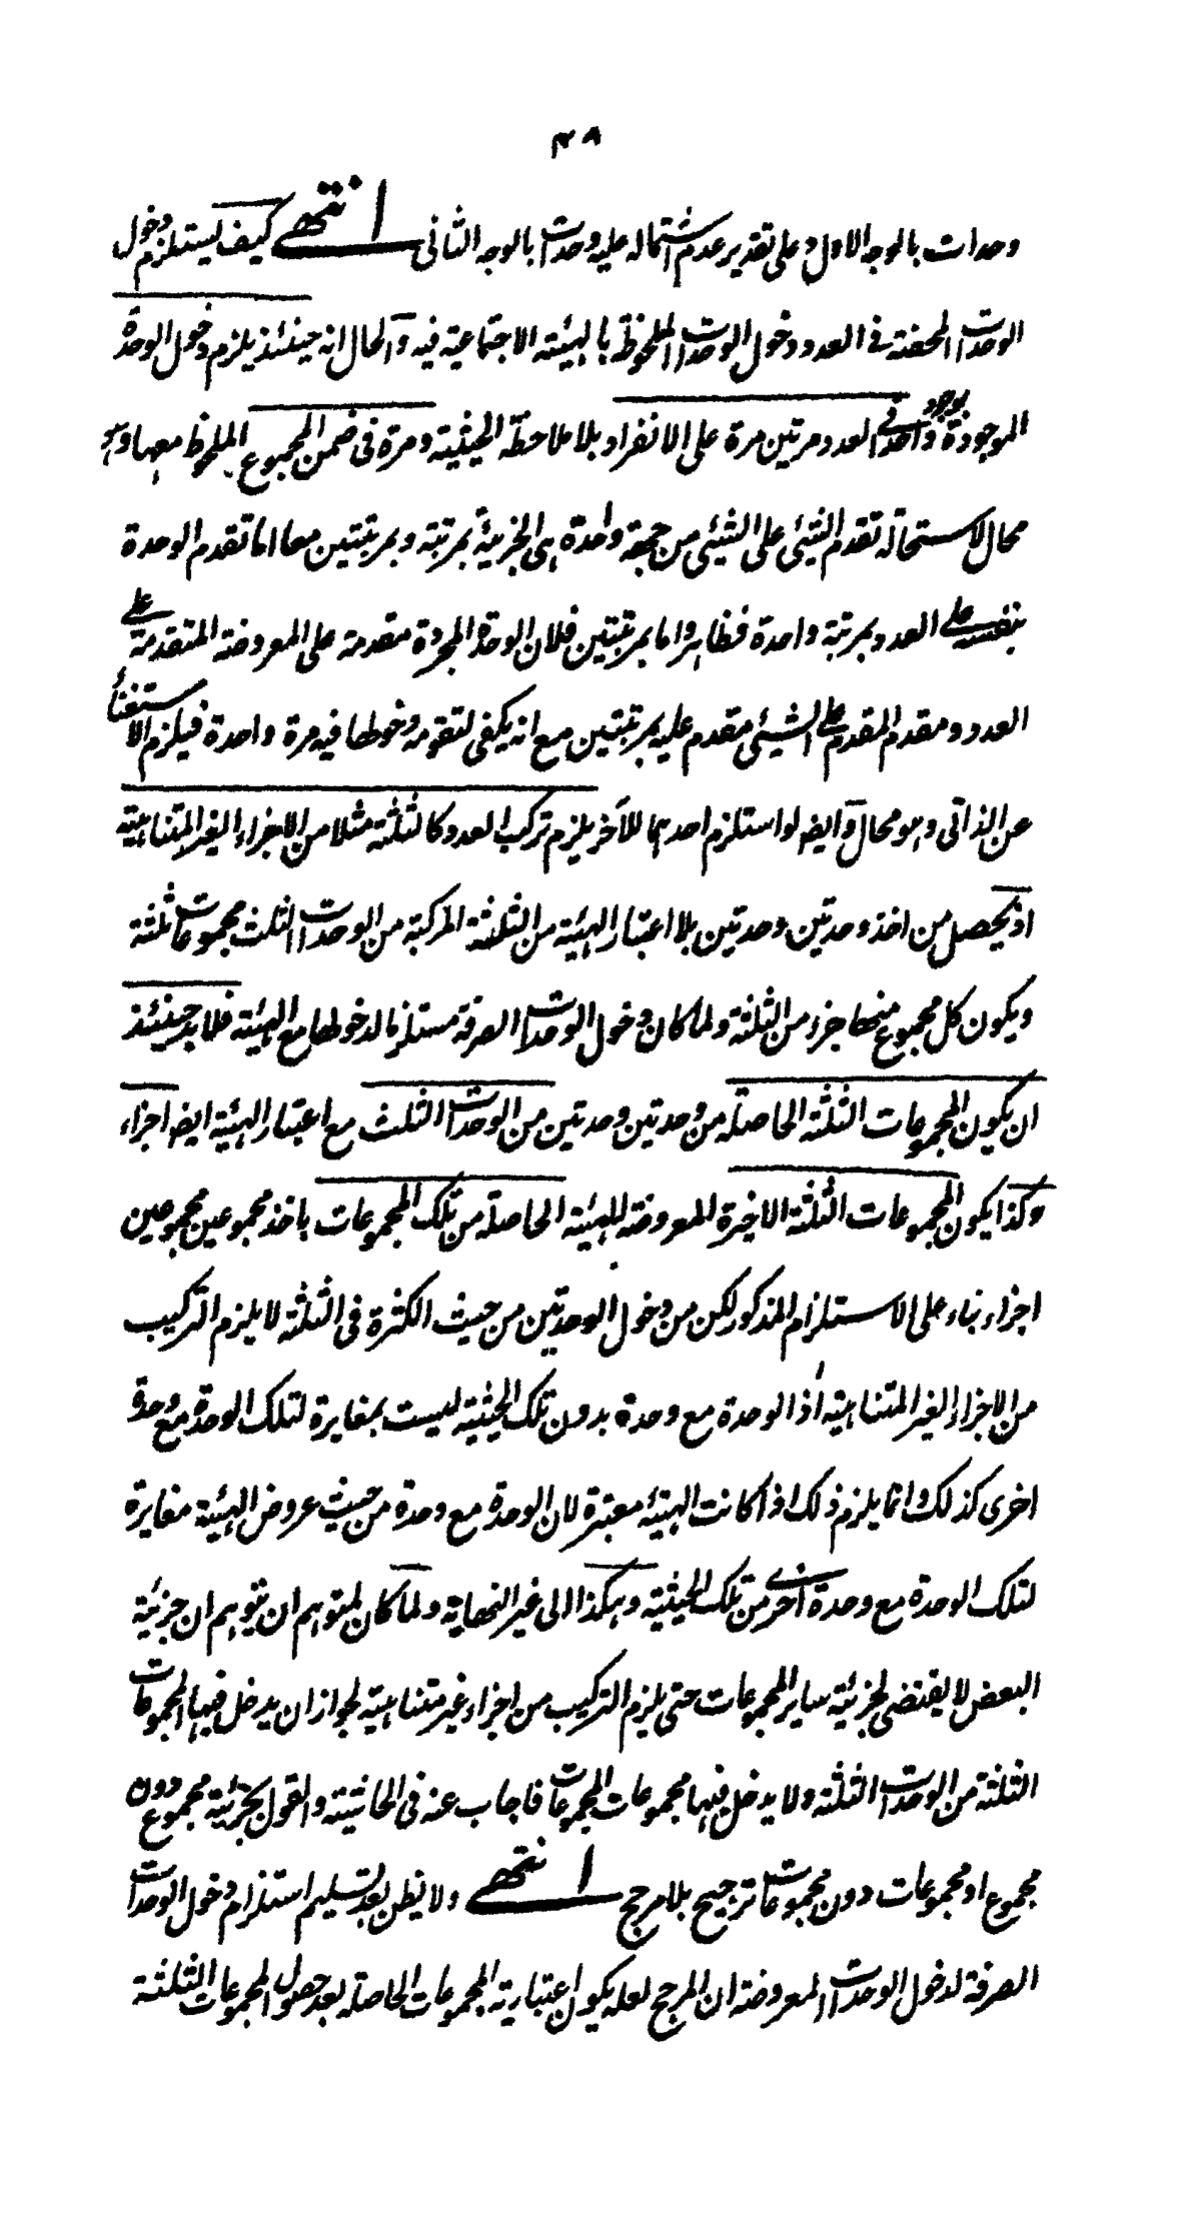 ٤٨
وحدات بالوجه الاول وعلى تقدير عدم اشتماله عليه وحدات بالوجه الثانى انتهى كيف يستلزم دخول
الوحدات المحضة فى العدد دخول الوحدات الملحوظة بالهيئة الاجتماعية فيه والحال انه حينئذ يلزم دخول الوحدة
الموجودة بوجود واحد فى العدد مرتين مرة على الانفراد بلا ملاحظة الحيثية ومرة فى ضمن المجموع الملحوظ معها وهو
محال لاستحالة تقدم الشيئى على الشيئى من جهة واحدة هى الجزئية بمرتبة وبمرتبتين معا اما تقدم الوحدة
بنفسها على العدد بمرتبة واحدة فظاهر واما بمرتبتين فلان الوحدة المجردة مقدمة على المعروضة المتقدمة على
العدد ومقدم المقدم على الشيئى مقدم عليه بمرتبتين مع انه يكفى لتقومه دخولها فيه مرة واحدة فيلزم الاستغناء
عن الذاتى وهو محال وايضا لو استلزم احدهما للآخر يلزم تركب العدد كالثلثة مثلا من الاجزاء الغير المتناهية
اذ يحصل من اخذ وحدتين وحدتين بلا اعتبار الهيئة من الثلثة المركبة من الوحدات الثلث مجموعات ثلثة
ويكون كل مجموع منها جزء من الثلثة ولما كان دخول الوحدات الصرفة مستلزما لدخولها مع الهيئة فلا بد حينئذ
ان يكون المجموعات الثلثة الحاصلة من وحدتين وحدتين من الوحدات الثلث مع اعتبار الهيئة ايضا اجزاء
وكذا يكون المجموعات الثلثة الاخيرة المعروضة للهيئة الحاصلة من تلك المجموعات باخذ مجموعين مجموعين
اجزاء بناء على الاستلزام المذكور لكن من دخول الوحدتين من حيث الكثرة فى الثلثة لا يلزم التركيب
من الاجزاء الغير المتناهية اذ الوحدة مع وحدة بدون تلك الحيثية ليست بمغايرة لتلك الوحدة مع وحدة
اخرى كذلك وانما يلزم ذلك اذا كانت الهيئة معتبرة لان الوحدة مع وحدة من حيث عروض الهيئة مغايرة
لتلك الوحدة مع وحدة اخرى من تلك الحيثية وهكذا الى غير النهاية ولما كان لمتوهم ان يتوهم ان جزئية
البعض لا يقتضى لجزئية ساير المجموعات حتى يلزم التركيب من اجزاء غير متناهية لجواز ان يدخل فيها المجموعات
الثلثة من الوحدات الثلثة ولا يدخل فيها مجموعات المجموعات فاجاب عنه فى الحاشية والقول بجزئية مجموع دون
مجموع او مجموعات دون مجموعات ترجيح بلا مرجح انتهى ولا يظن بعد تسليم استلزام دخول الوحدات
الصرفة لدخول الوحدات المعروضة ان المرجح لعله يكون اعتبارية المجموعات الحاصلة بعد حصول المجموعات الثلثة